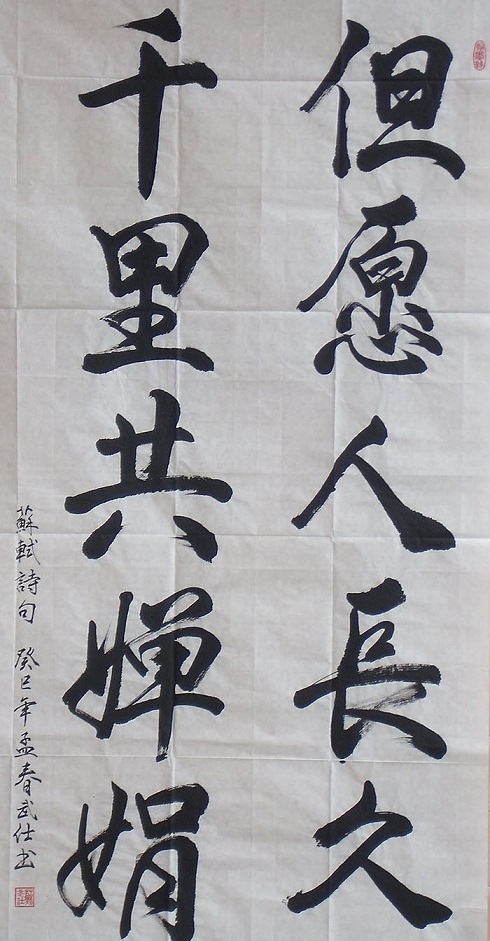 但愿人長久
千里共婵娟
蘇軾詩句 癸巳年孟春武仕书